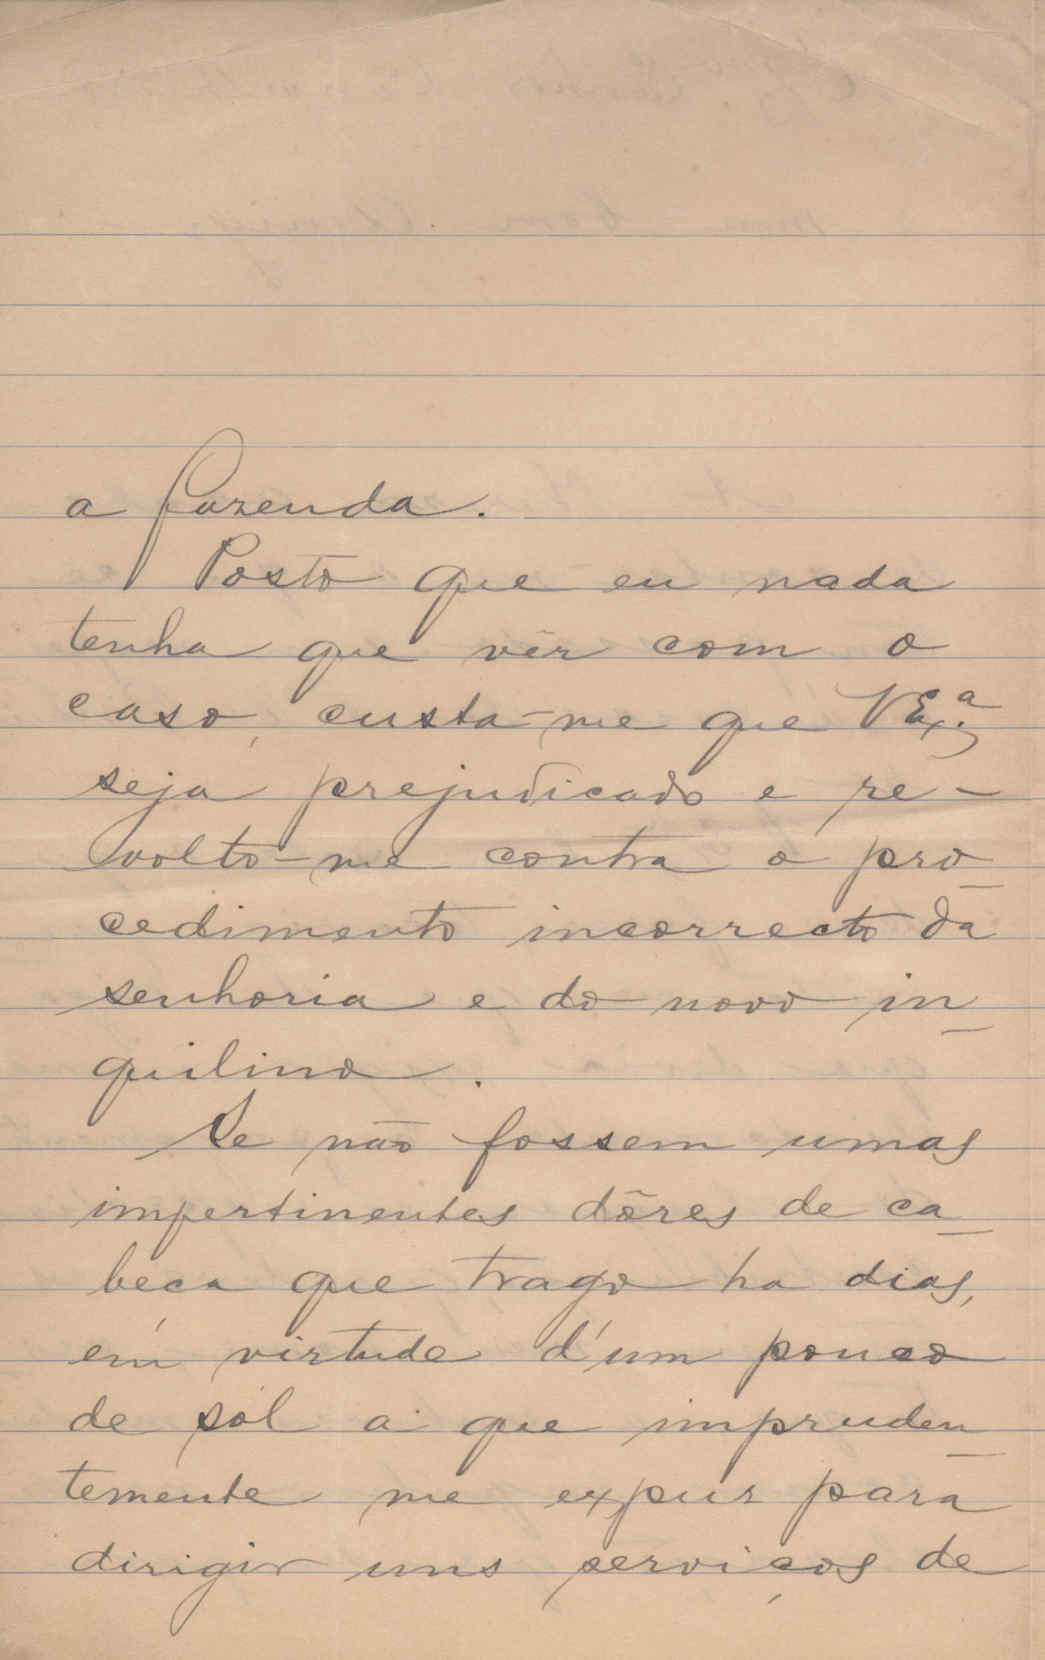 a fazenda.
Posto que eu nada
tenha que vêr com o
caso, custa-me que VExª.
seja prejudicado e re-
volto-me contra o pro-
cedimento incorrecto da
senhoria e do novo in-
quilino.
Se não fossem umas
impertinentes dôres de ca-
beça que trago ha dias,
em virtude d'um pouco
de sol a que impruden-
temente me expuz para
dirigir uns serviços de